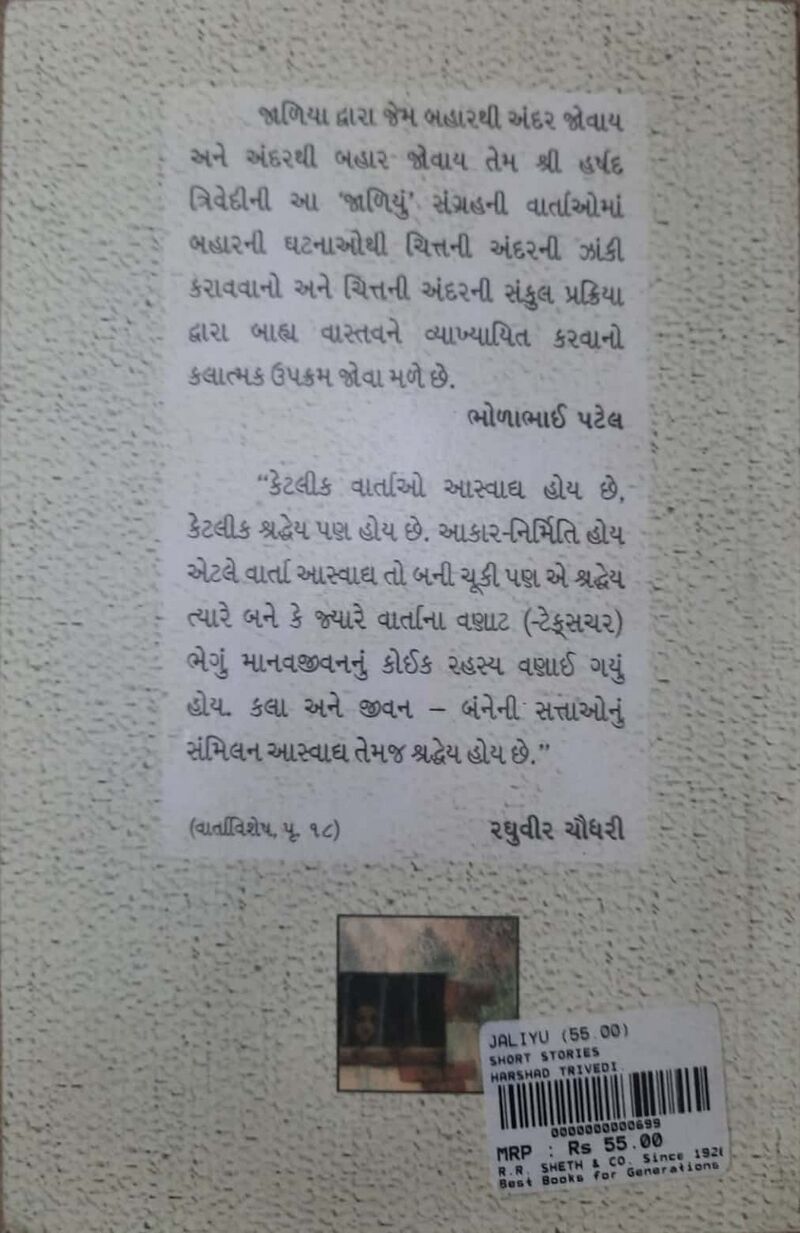 જાળિયા દ્વારા જેમ બહારથી અંદર જોવાય
અને અંદરથી બહાર જોવાય તેમ શ્રી હર્ષદ
ત્રિવેદીની આ ‘જાળિયું’ સંગ્રહની વાર્તાઓમાં
બહારની ઘટનાઓથી ચિત્તની અંદરની ઝાંકી
કરાવવાનો અને ચિત્તની અંદરની સંકુલ પ્રક્રિયા
દ્વારા બાહ્ય વાસ્તવને વ્યાખ્યાયિત કરવાનો
કલાત્મક ઉપક્રમ જોવા મળે છે.
ભોળાભાઈ પટેલ
“કેટલીક વાર્તાઓ આસ્વાદ્ય હોય છે,
કેટલીક શ્રદ્ધેય પણ હોય છે. આકાર-નિર્મિતિ હોય
એટલે વાર્તા આસ્વાદ્ય તો બની ચૂકી પણ એ શ્રદ્ધેય
ત્યારે બને કે જ્યારે વાર્તાના વણાટ (-ટેક્સચર)
ભેગું માનવજીવનનું કોઈક રહસ્ય વણાઈ ગયું
હોય. કલા અને જીવન – બંનેની સત્તાઓનું
સંમિલન આસ્વાદ્ય તેમજ શ્રદ્ધેય હોય છે.”
(વાર્તાવિશેષ, પૃ. ૧૮) રઘુવીર ચૌધરી
JALIYU (55.00)
SHORT STORIES
HARSHAD TRIVEDI
0000000000699
MRP : Rs 55.00
R.R. SHETH & CO. Since 1926
Best Books for Generations